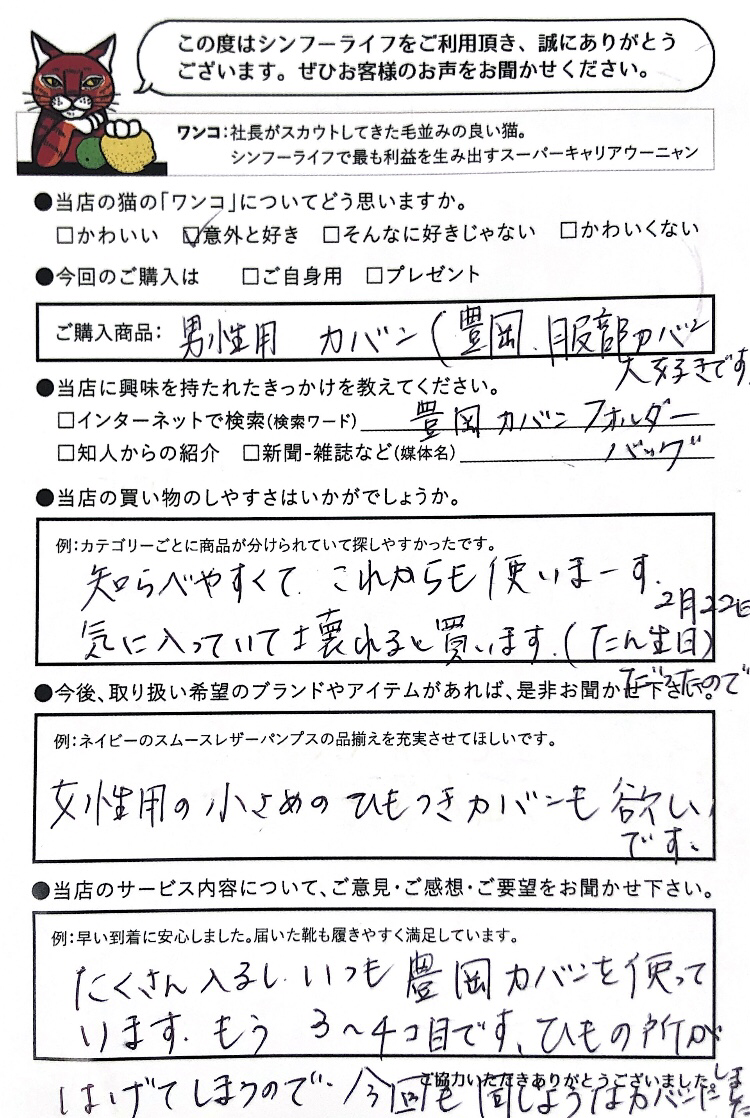 この度はシンフーライフをご利用頂き、誠にありがとう
ございます。ぜひお客様のお声をお聞かせください。
ワンコ：社長がスカウトしてきた毛並みの良い猫。
シンフーライフで最も利益を生み出すスーパーキャリアウーニャン
●当店の猫の「ワンコ」についてどう思いますか。
□かわいい ☑意外と好き □そんなに好きじゃない □かわいくない
●今回のご購入は □ご自身用 □プレゼント
ご購入商品： 男性用 カバン（豊岡、服部カバン
大好きです
●当店に興味を持たれたきっかけを教えてください。
□インターネットで検索（検索ワード） 豊岡カバン フォルダー
バッグ
□知人からの紹介 □新聞-雑誌など（媒体名）
●当店の買い物のしやすさはいかがでしょうか。
例：カテゴリーごとに商品が分けられていて探しやすかったです。
知らべやすくて これからも使いまーす。
気に入っていて 壊れると買います。（たん生日）
2月22日
だったので
●今後、取り扱い希望のブランドやアイテムがあれば、是非お聞かせ下さい。
例：ネイビーのスムースレザーパンプスの品揃えを充実させてほしいです。
女性用の小さめのひもつきカバンも欲しい
です。
●当店のサービス内容について、ご意見・ご感想・ご要望をお聞かせ下さい。
例：早い到着に安心しました。届いた靴も履きやすく満足しています。
たくさん入るし いつも豊岡カバンを使って
います。もう 3〜4コ目です。ひもの所が
はげてしまうので 今回も同じようなカバンにしました
ご協力いただきありがとうございました。